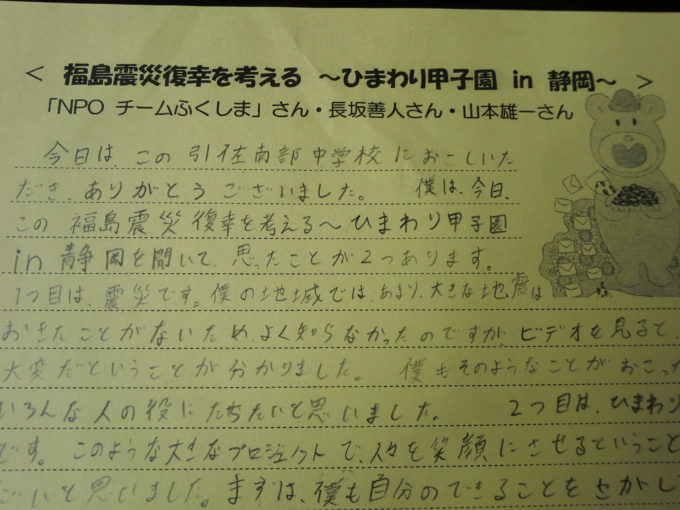 ＜ 福島震災復幸を考える ～ひまわり甲子園 in 静岡～ ＞
「NPO チームふくしま」さん・長坂善人さん・山本雄一さん
今日は、この 引佐南部中学校におこしいた
だき、ありがとうございました。 僕は、今日、
この 福島震災復幸を考える～ひまわり甲子園
in 静岡を聞いて、思ったことが2つあります。
1つ目は、震災です。僕の地域では、あまり、大きな地震は
おきたことがないため、よく知らなかったのですがビデオを見ると、
大変だということが分かりました。 僕もそのようなことがおこった
いろんな人の役にたちたいと思いました。 2つ目は、ひまわり
です。このような大きなプロジェクトで、人々を笑顔にさせるということ
ごいと思いました。まずは、僕も自分のできることをさがし